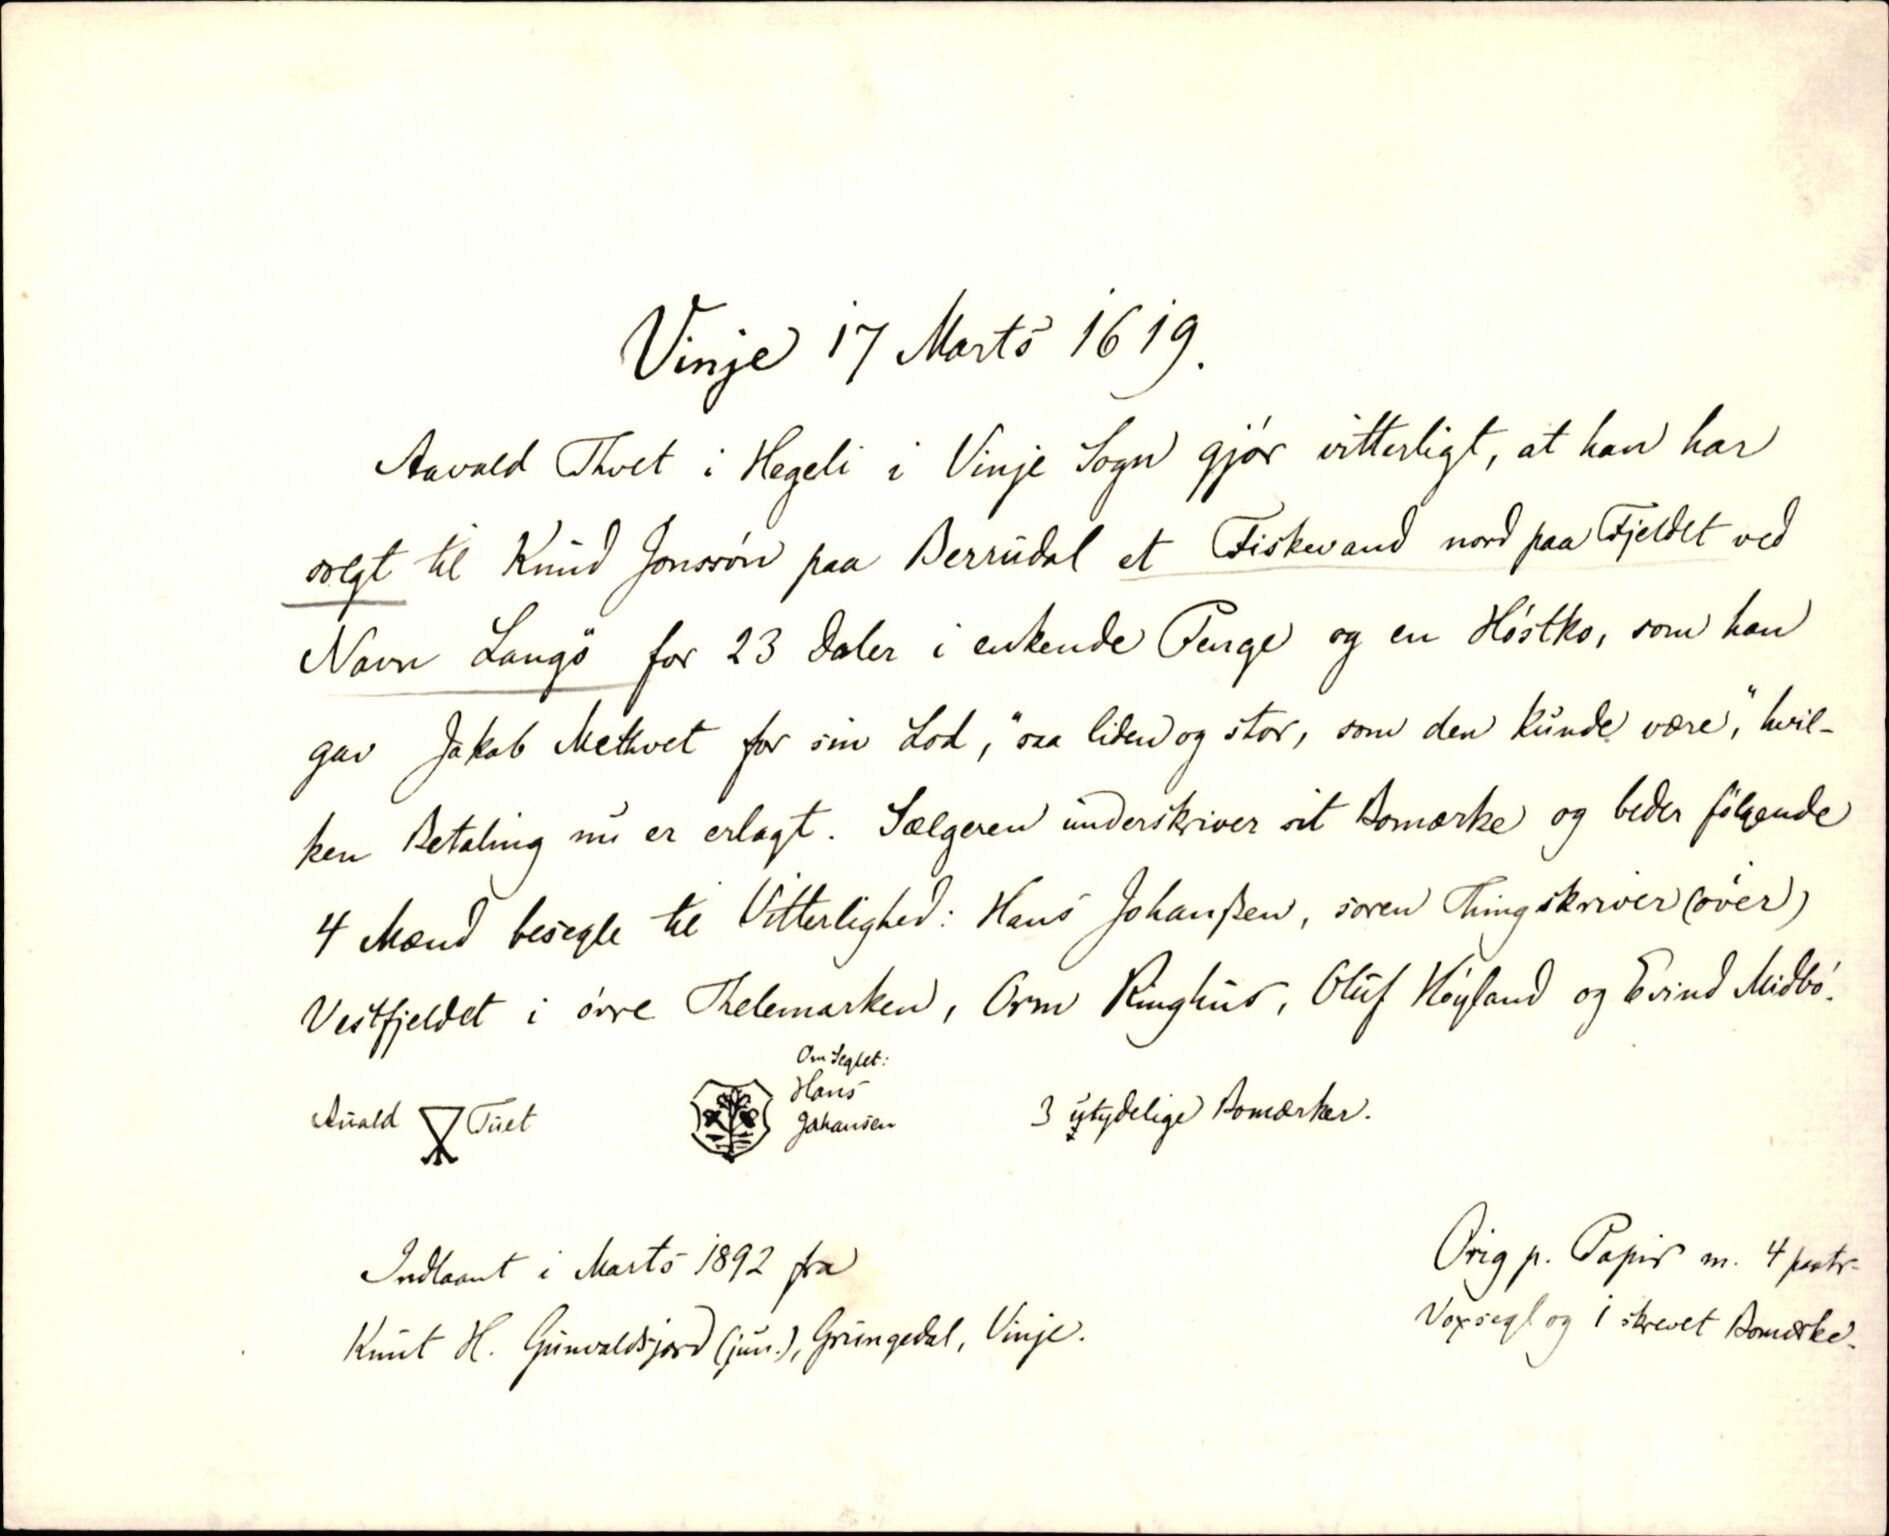 Vinje 17 Marts 1619.
Aavald Thvet i Hegeli i Vinje Sogn gjør vitterligt, at han har
solgt til Knud Jonssøn paa Berrudal et Fiskevand nord paa Fjeldet ved
Navn Langö for 23 Daler i enkende Penge og en Høstko, som han
gav Jakob Methvet for sin Lod, "saa liden og stor, som den kunde være," hvil-
ken Betaling nu er erlagt. Sælgeren underskriver sit Bomærke og beder følgende
4 Mænd besegle til Vitterlighed: Hans Johanßen, soren Thingskriver (over)
Vestfjeldet i øvre Thelemarken, Orm Ringhus, Oluf Høyland og Evind Midbø.
Auald Tuet
Om Seglet:
Hans
Johansen
3 utydelige Bomærker.
Indlaant i Marts 1892 fra
Knut H. Gunvaldsjord (jun.), Grungedal, Vinje.
Orig p. Papir m. 4 paatr.
Voxsegl og 1 skrevet Bomærke.